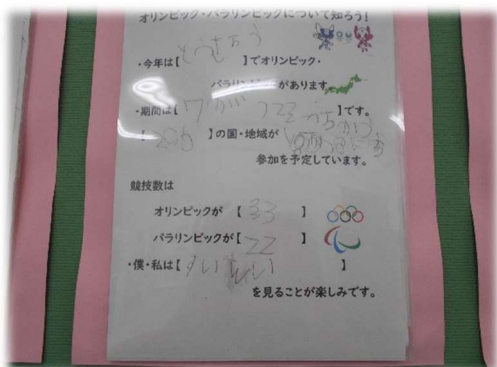 オリンピック・パラリンピックについて知ろう!
・今年は【とうきょう】でオリンピック・
パラリンピックがあります。
・期間は【7がつ】です。
【206】の国・地域が
参加を予定しています。
競技数は
オリンピックが【33】
パラリンピックが【22】
・僕・私は【すいえい】
を見ることが楽しみです。